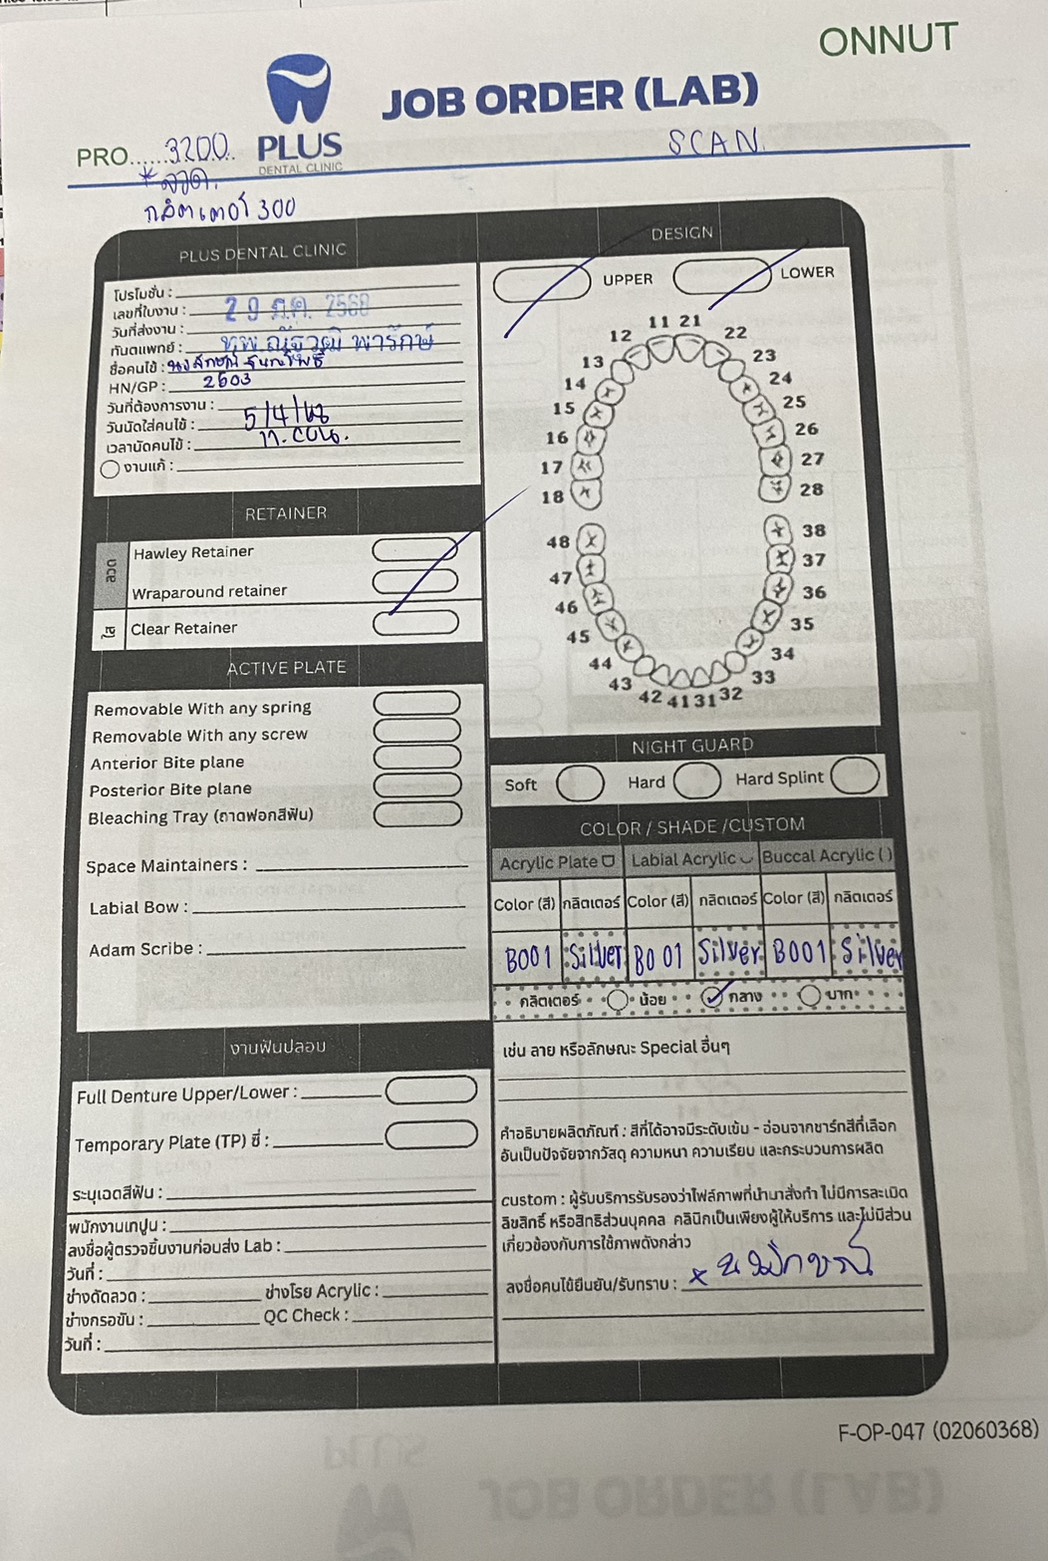 ONNUT
PLUS
DENTAL CLINIC
JOB ORDER (LAB)
PRO......3200..
SCAN.
* ลวด.
กลิตเตอร์ 300
PLUS DENTAL CLINIC
โปรโมชั่น :
เลขที่ใบงาน :
วันที่ส่งงาน : 29 มี.ค. 2568
ทันตแพทย์ : ทพ.ณัฐวุฒิ พารักษ์
ชื่อคนไข้ :
HN/GP : 2603
วันที่ต้องการงาน :
วันนัดใส่คนไข้ : 5/4/68
เวลานัดคนไข้ :
งานแก้ :
RETAINER
ลวด
Hawley Retainer
Wraparound retainer
ใส
Clear Retainer
ACTIVE PLATE
Removable With any spring
Removable With any screw
Anterior Bite plane
Posterior Bite plane
Bleaching Tray (ถาดฟอกสีฟัน)
Space Maintainers :
Labial Bow :
Adam Scribe :
งานฟันปลอม
Full Denture Upper/Lower :
Temporary Plate (TP) ซี่ :
ระบุเฉดสีฟัน :
พนักงานเทปูน :
ลงชื่อผู้ตรวจชิ้นงานก่อนส่ง Lab :
วันที่ :
ช่างดัดลวด : ช่างโรย Acrylic :
ช่างกรอขัด : QC Check :
วันที่ :
DESIGN
UPPER LOWER
11 21
12 22
13 23
14 24
15 25
16 26
17 27
18 28
48 38
47 37
46 36
45 35
44 34
43 33
42 41 31 32
NIGHT GUARD
Soft Hard Hard Splint
COLOR / SHADE /CUSTOM
Acrylic Plate Labial Acrylic Buccal Acrylic ( )
Color (สี) กลิตเตอร์ Color (สี) กลิตเตอร์ Color (สี) กลิตเตอร์
B001 Silver B001 Silver B001 Silver
กลิตเตอร์ น้อย กลาง มาก
เช่น ลาย หรือลักษณะ Special อื่นๆ
คำอธิบายผลิตภัณฑ์ : สีที่ได้อาจมีระดับเข้ม - อ่อนจากชาร์ทสีที่เลือก
อันเป็นปัจจัยจากวัสดุ ความหนา ความเรียบ และกระบวนการผลิต
custom : ผู้รับบริการรับรองว่าไฟล์ภาพที่นำมาสั่งทำ ไม่มีการละเมิด
ลิขสิทธิ์ หรือสิทธิส่วนบุคคล คลินิกเป็นเพียงผู้ให้บริการ และไม่มีส่วน
เกี่ยวข้องกับการใช้ภาพดังกล่าว
ลงชื่อคนไข้ยืนยัน/รับทราบ : x
F-OP-047 (02060368)